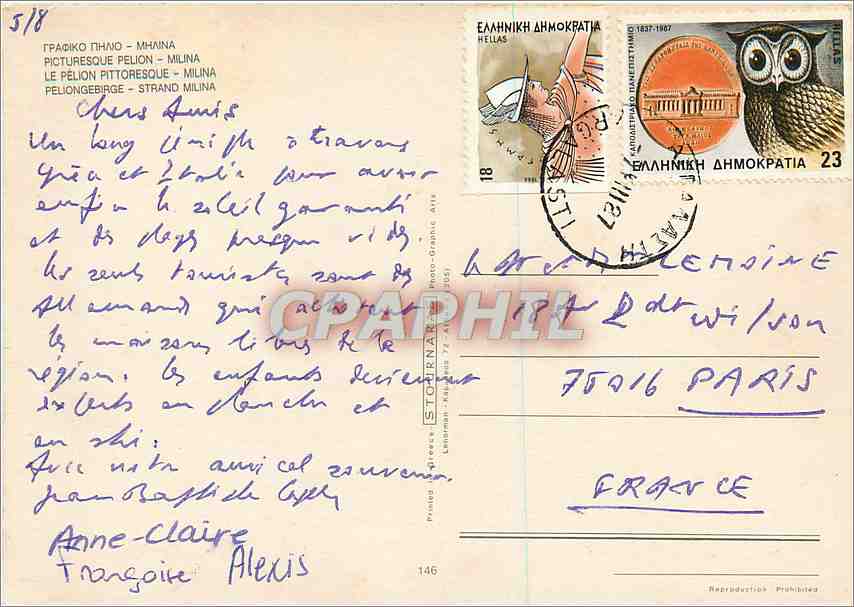 5/8
ΓΡΑΦΙΚΟ ΠΗΛΙΟ – ΜΗΛΙΝΑ
PICTURESQUE PELION – MILINA
LE PÉLION PITTORESQUE – MILINA
PELIONGEBIRGE – STRAND MILINA
Chers Amis
Un long périple à travers
et Italie pour avoir
enfin le soleil garanti
et des plages presque vides.
les seuls touristes sont des
Allemands qui achètent
les maisons libres de la
région. les enfants deviennent
experts en planche et
en ski.
Avec notre amical souvenir.
Jean Baptiste
Anne-Claire
Françoise Alexis
ΕΛΛΗΝΙΚΗ ΔΗΜΟΚΡΑΤΙΑ
HELLAS
18
ΚΑΠΟΔΙΣΤΡΙΑΚΟ ΠΑΝΕΠΙΣΤΗΜΙΟ 1837-1987
HELLAS
ΕΛΛΗΝΙΚΗ ΔΗΜΟΚΡΑΤΙΑ 23
ARGALASTI
VIII 87
LEMOINE
18 Bd wilson
75016 PARIS
FRANCE
Printed in Greece - STOURNARA Photo-Graphic Arts
146
Reproduction Prohibited
CPAPHIL